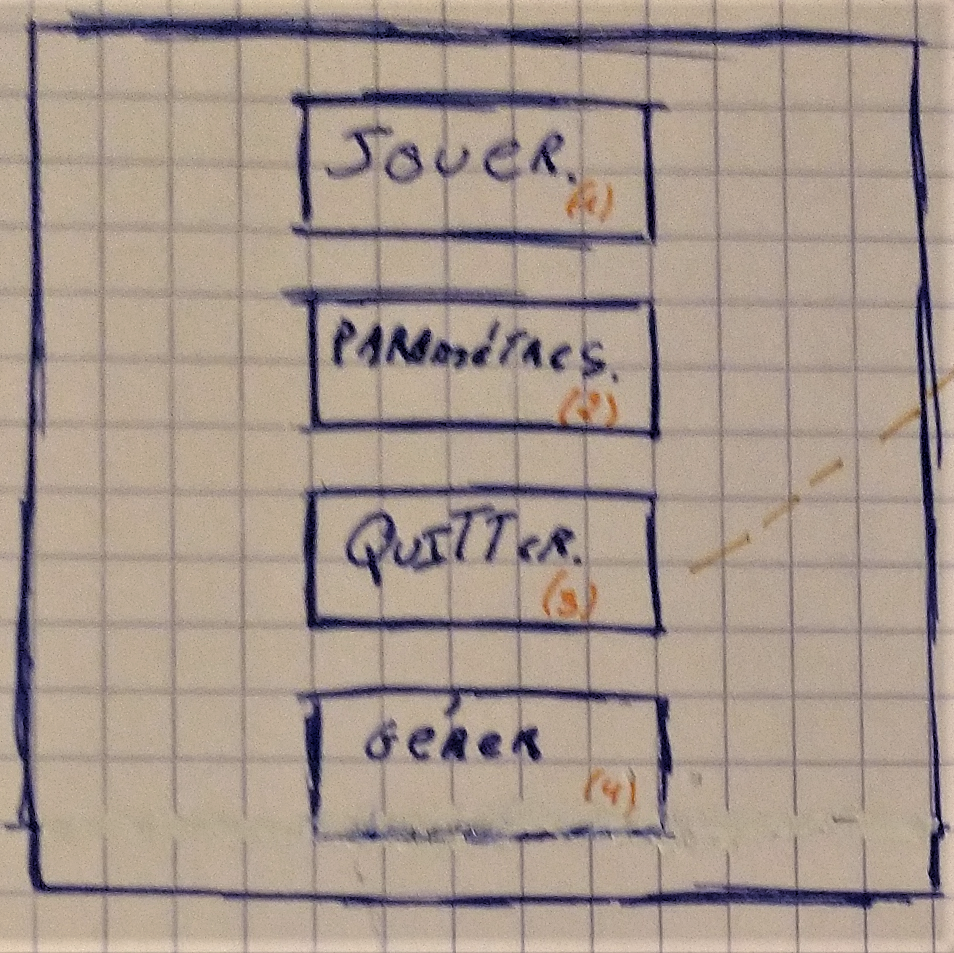 JOUER.
(1)
PARAMÉTRES.
(2)
QUITTER.
(3)
GÉRER
(4)